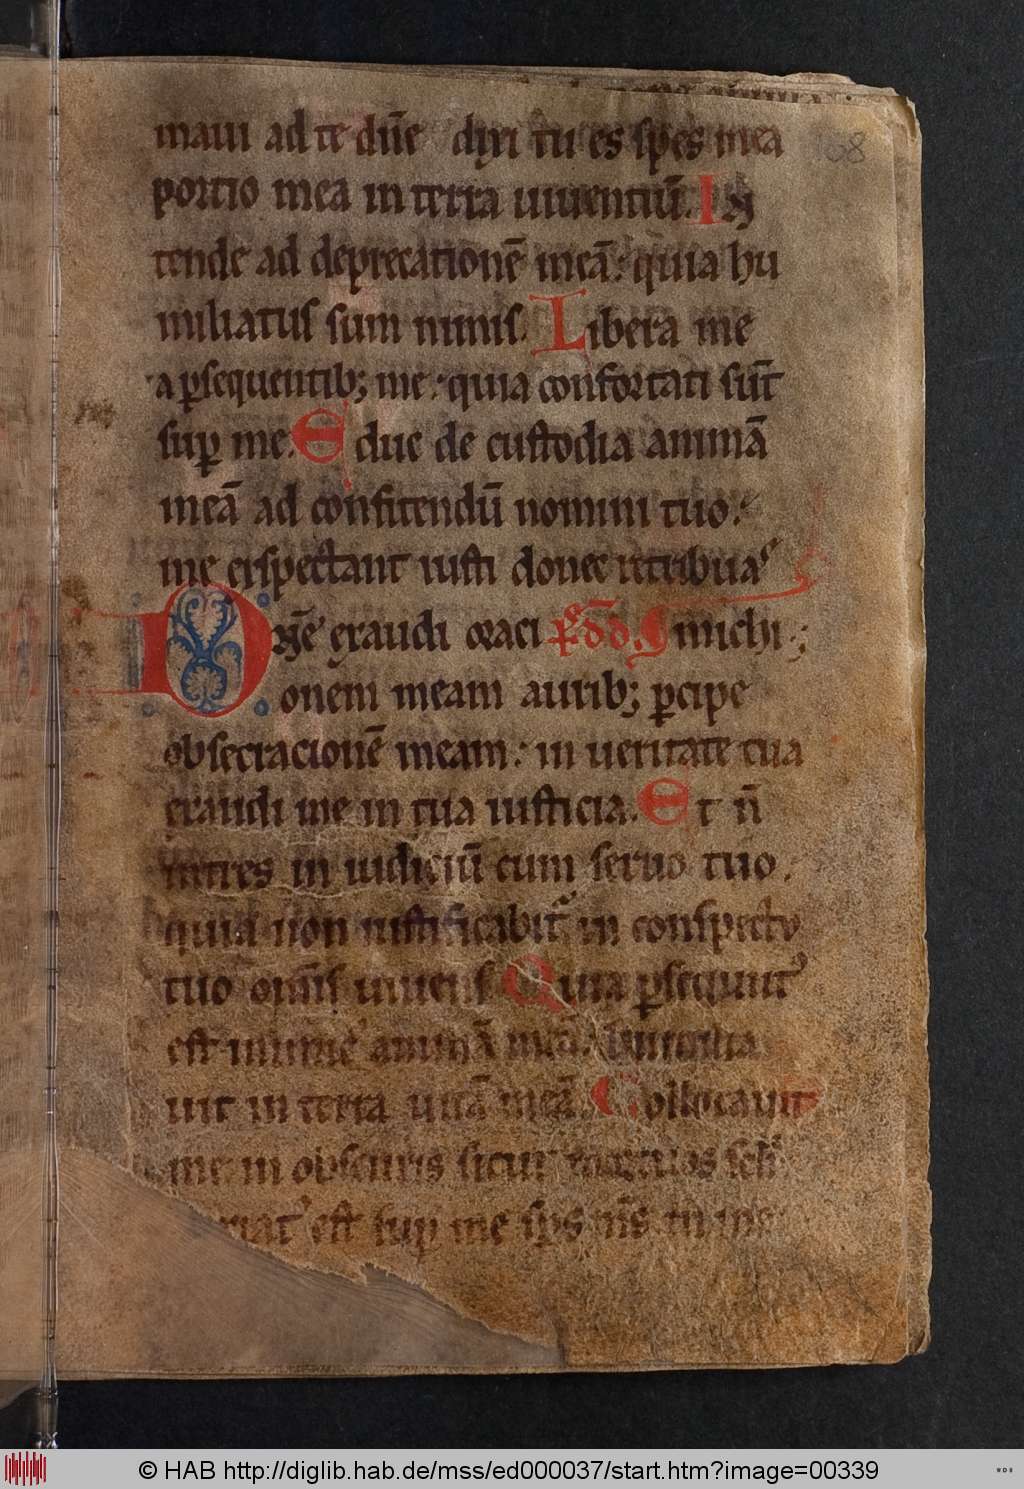 168
maui ad te dn̄e dixi tu es spes mea
portio mea in terra uiuentiū. In
tende ad deprecationē meā: quia hu
miliatus sum nimis. Libera me
a ꝑsequentib; me: quia confortati sūt
suꝑ me. Educ de custodia animā
meā ad confitendū nomini tuo:
me exspectant iusti donec retribuas
Dn̄e exaudi oraci michi.;
onem meam aurib; ꝑcipe
obsecracionē meam: in ueritate tua
exaudi me in tua iusticia. Et n̄
intres in iudiciū cum seruo tuo:
quia non iustificabit̉ in conspectu
tuo om̄is uiuens Quia ꝑsequut᾽
est inimic᾽ animā meā: humilia
uit in terra uitā meā. Collocauit
me in obscuris sicut mortuos scl̄i
est suꝑ me sp̄s m̄s in me
© HAB http://diglib.hab.de/mss/ed000037/start.htm?image=00339